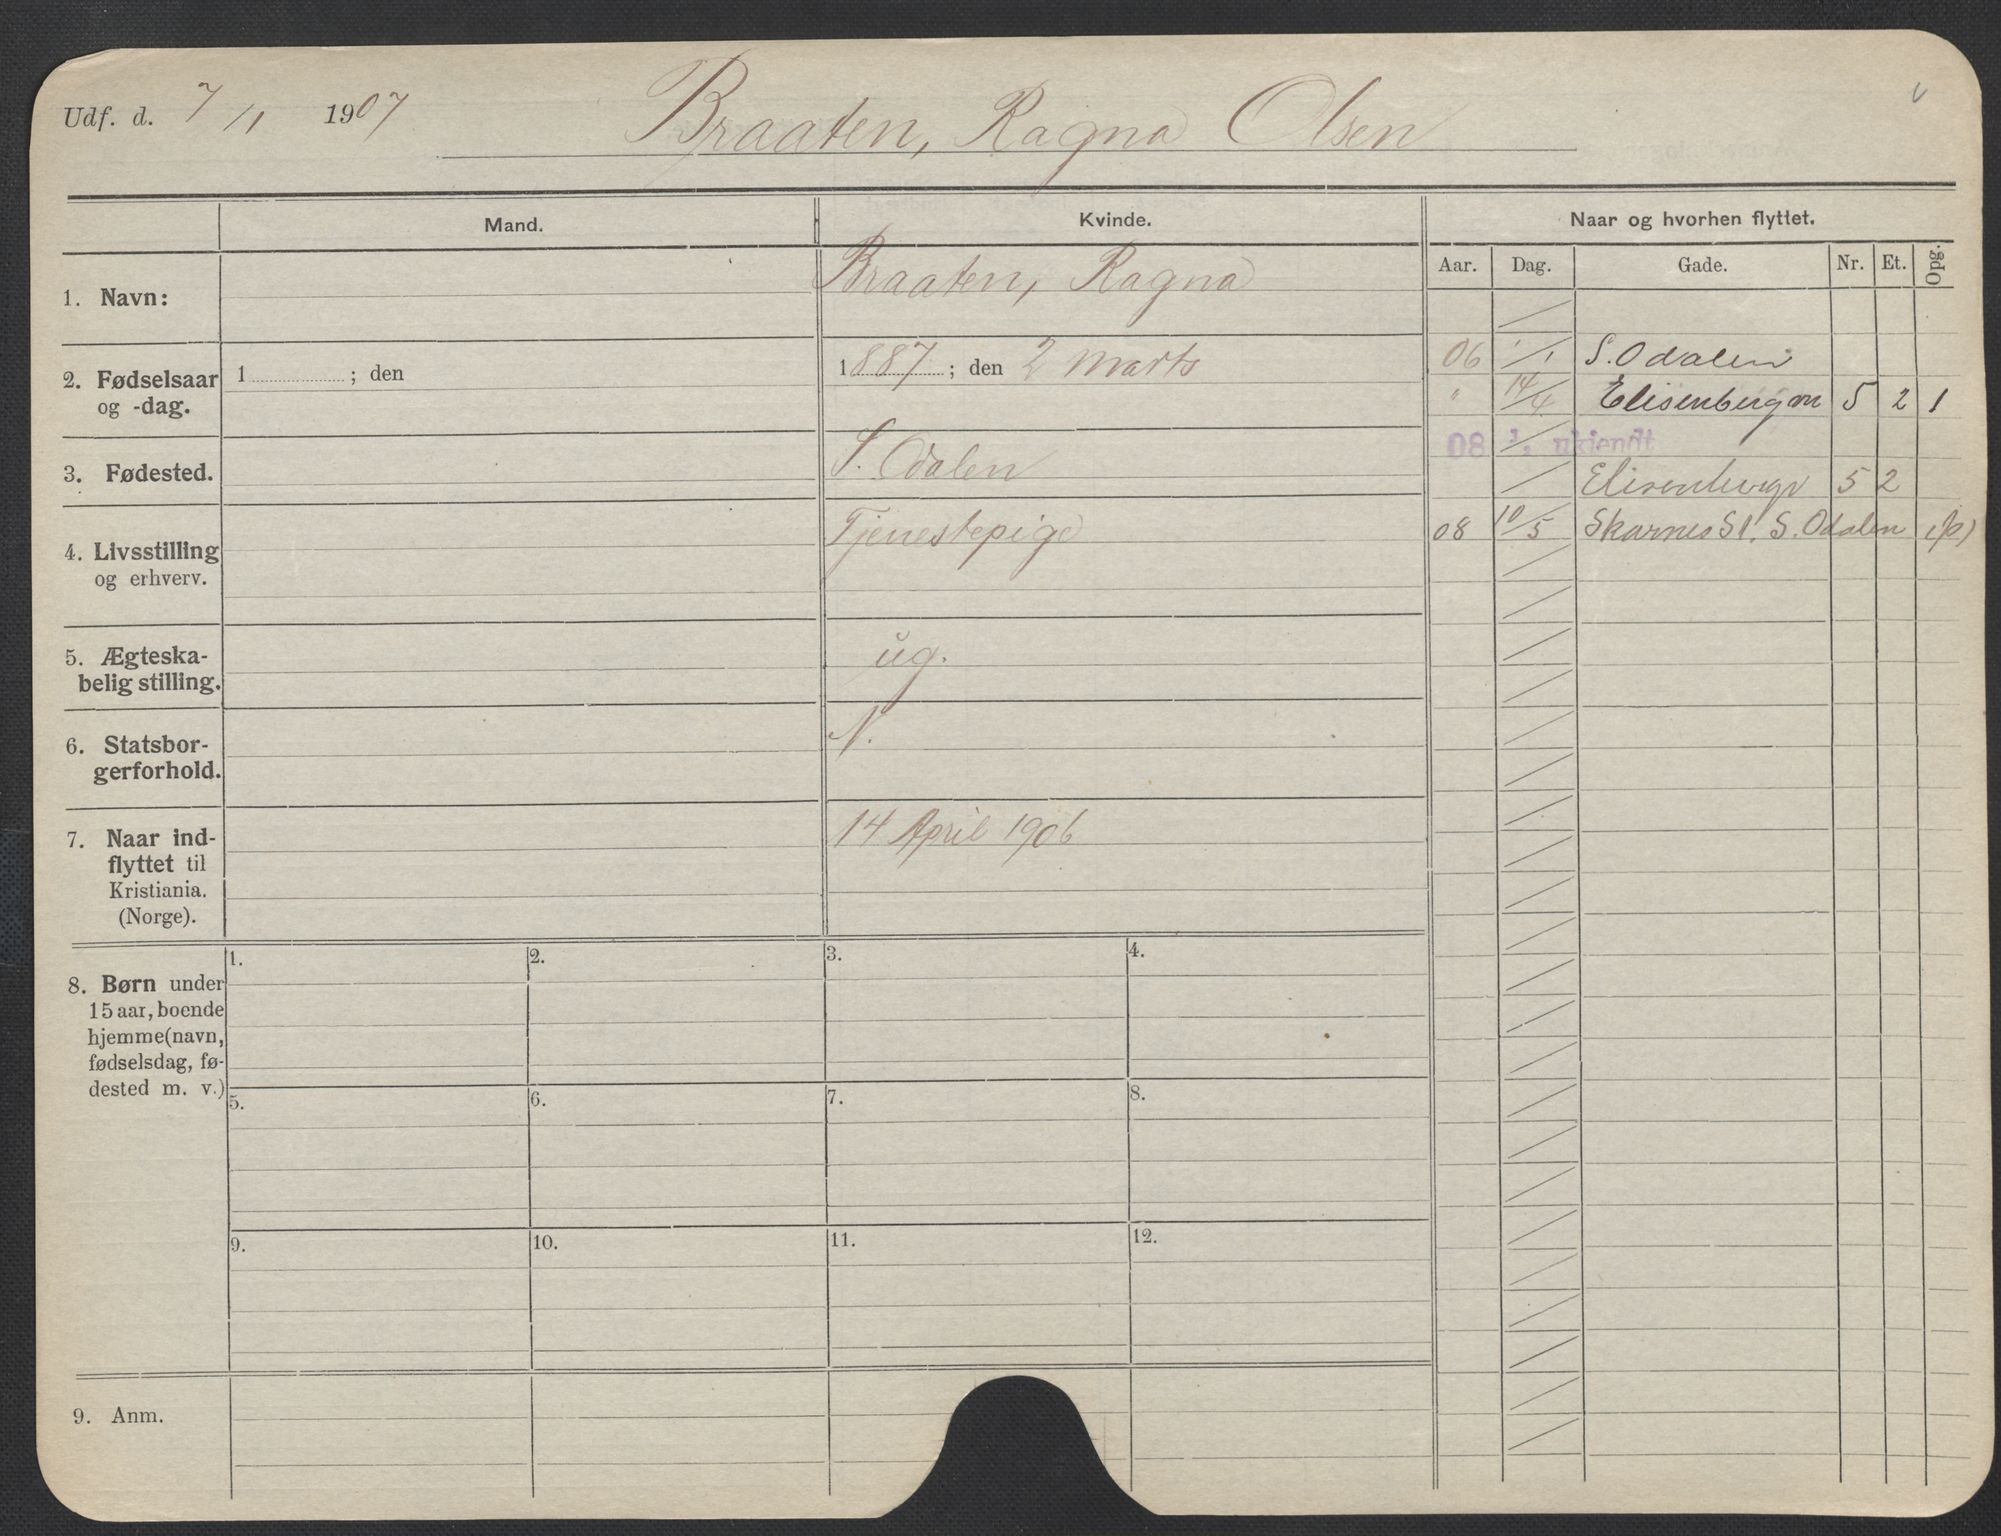 Udf. d. 7/1 1907 Braaten, Ragna Olsen
Mand. Kvinde. Naar og hvorhen flyttet.
Aar. Dag. Gade. Nr. Et. Opg.
1. Navn: Braaten, Ragna
2. Fødselsaar og -dag. 1 ; den 1887 ; den 2 Marts
3. Fødested. S. Odalen
4. Livsstilling og erhverv. Tjenestepige
5. Ægteska-
belig stilling. ug.
6. Statsbor-
gerforhold. N.
7. Naar ind-
flyttet til
Kristiania.
(Norge).
14 April 1906
06 1/1 S. Odalen
" 14/4 Elisenbergvn 5 2 1
08 1/1 ukjendt
Elisenbergv 5 2
08 10/5 Skarnes St. S. Odalen (p)
8. Børn under
15 aar, boende
hjemme (navn,
fødselsdag, fø-
dested m. v.)
1. 2. 3. 4.
5. 6. 7. 8.
9. 10. 11. 12.
9. Anm.